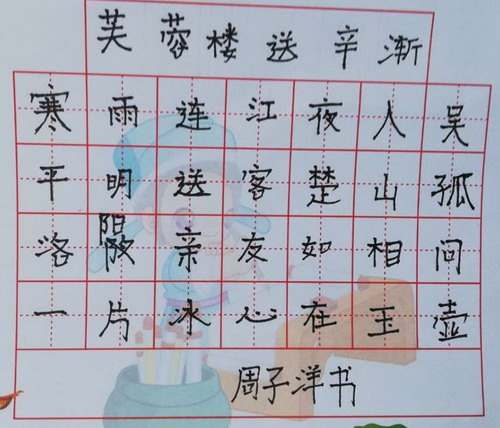 芙蓉楼送辛渐
寒雨连江夜人吴
平明送客楚山孤
洛阳亲友如相问
一片冰心在玉壶
周子洋书